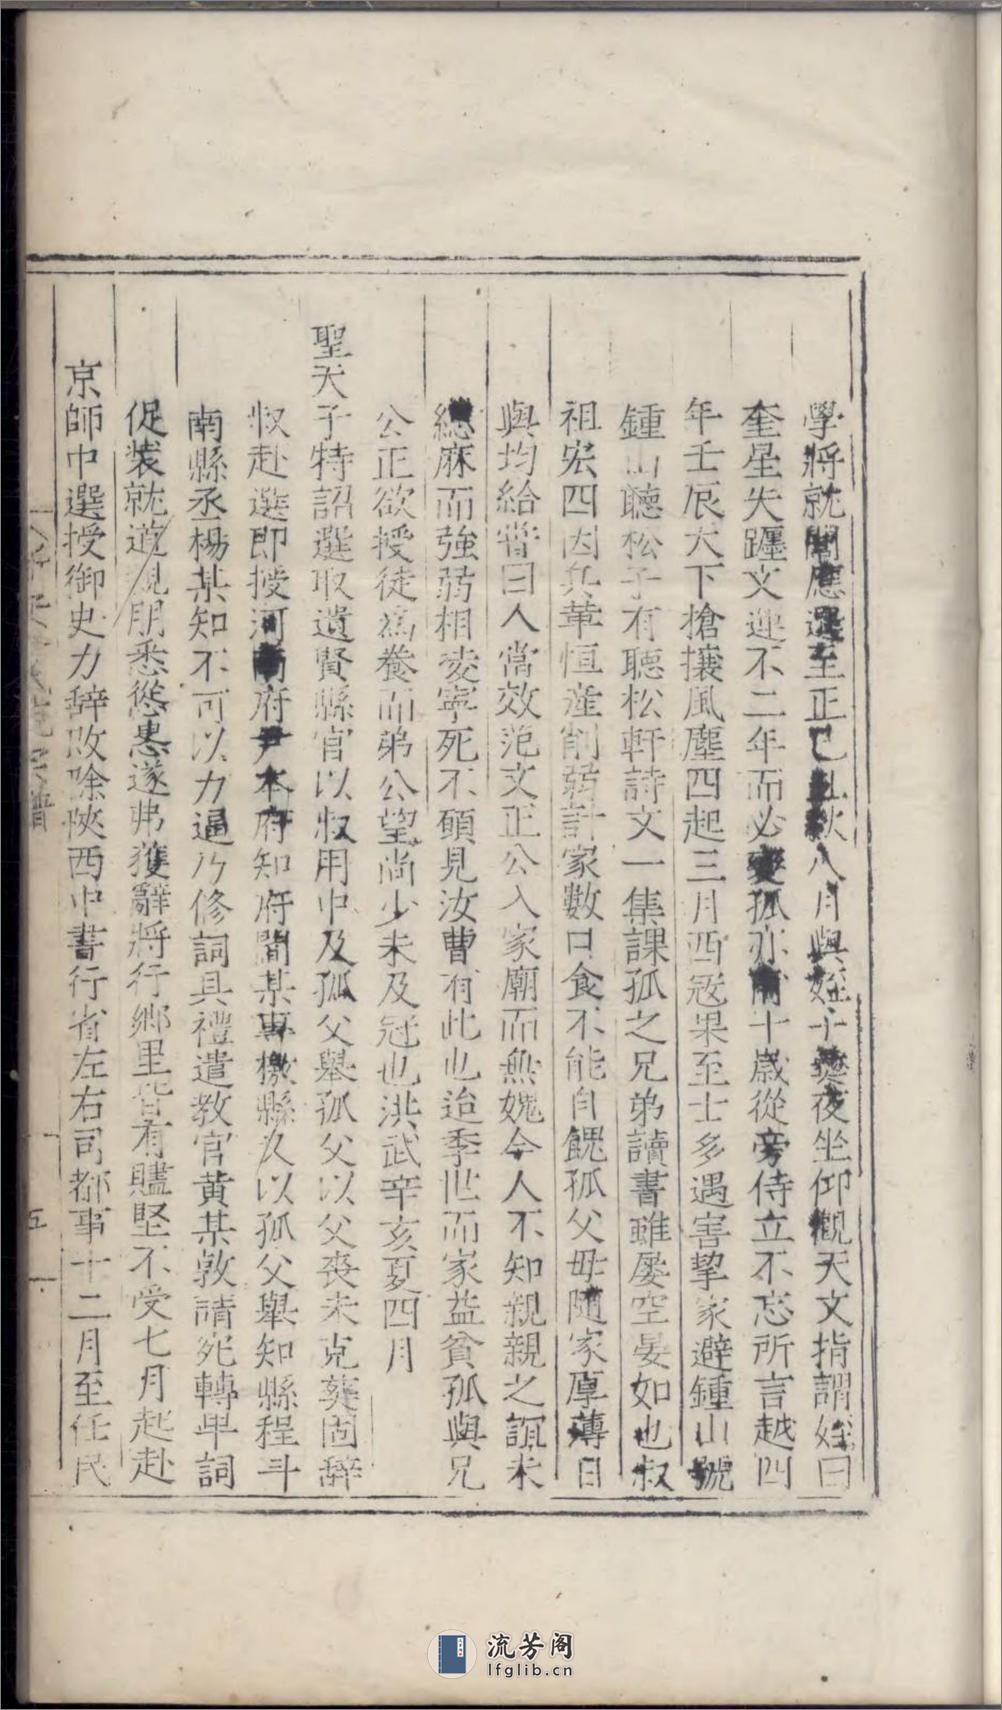 學將就閣應選至正己丑秋八月與姪十葵夜坐仰觀天文指謂姪曰
奎星失躔文運不二年而必變孤亦甫十歲從旁侍立不忘所言越四
年壬辰大下搶攘風塵四起三月西寇果至士多遇害挈家避鍾山號
鍾山聽松子有聽松軒詩文一集課孤之兄弟讀書雖屡空晏如也叔
祖宏四因兵革恒產削弱計家數口食不能自餽孤父毋隨家厚薄日
與均給嘗曰人當效范文正公入家廟而無媿今人不知親親之誼未
緦麻而強弱相凌寧死不願見汝曹有此也迨季世而家益貧孤與兄
公正欲授徒爲養而弟公望尚少未及冠也洪武辛亥夏四月
聖天子特詔選取遺賢縣官以叔用中及孤父舉孤父以父喪未克葬固辭
叔赴選即授河南府尹本府知府閻某專檄縣又以孤父舉知縣程斗
南縣丞楊某知不可以力逼乃修詞具禮遣教官黄某敦請宛轉卑詞
促裝就道親朋悉慫恿遂弗獲辭將行鄉里皆有贐堅不受七月起赴
京師中選授御史力辞改除陝西中書行省左右司都事十二月至任民
五
流芳阁
lfglib.cn